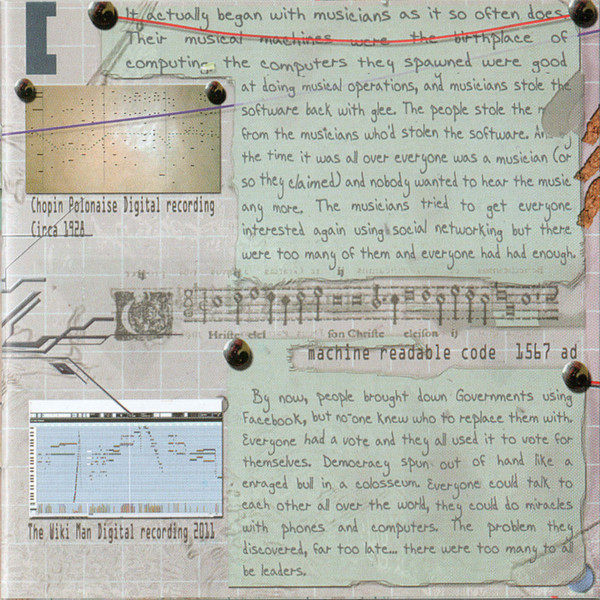 It actually began with musicians as it so often does.
Their musical machines were the birthplace of
computing, the computers they spawned were good
at doing musical operations, and musicians stole the
software back with glee. The people stole the
from the musicians who'd stolen the software.
the time it was all over everyone was a musician (or
so they claimed) and nobody wanted to hear the music
any more. The musicians tried to get everyone
interested again using social networking but there
were too many of them and everyone had had enough.
Chopin Polonaise Digital recording
Circa 1928
ij ij
Hriste elei son Christe eleison ij
machine readable code 1567 ad
By now, people brought down Governments using
Facebook, but no-one knew who to replace them with.
Everyone had a vote and they all used it to vote for
themselves. Democracy spun out of hand like a
enraged bull in a colosseum. Everyone could talk to
each other all over the world, they could do miracles
with phones and computers. The problem they
discovered, far too late... there were too many to all
be leaders.
The Wiki Man Digital recording 2011